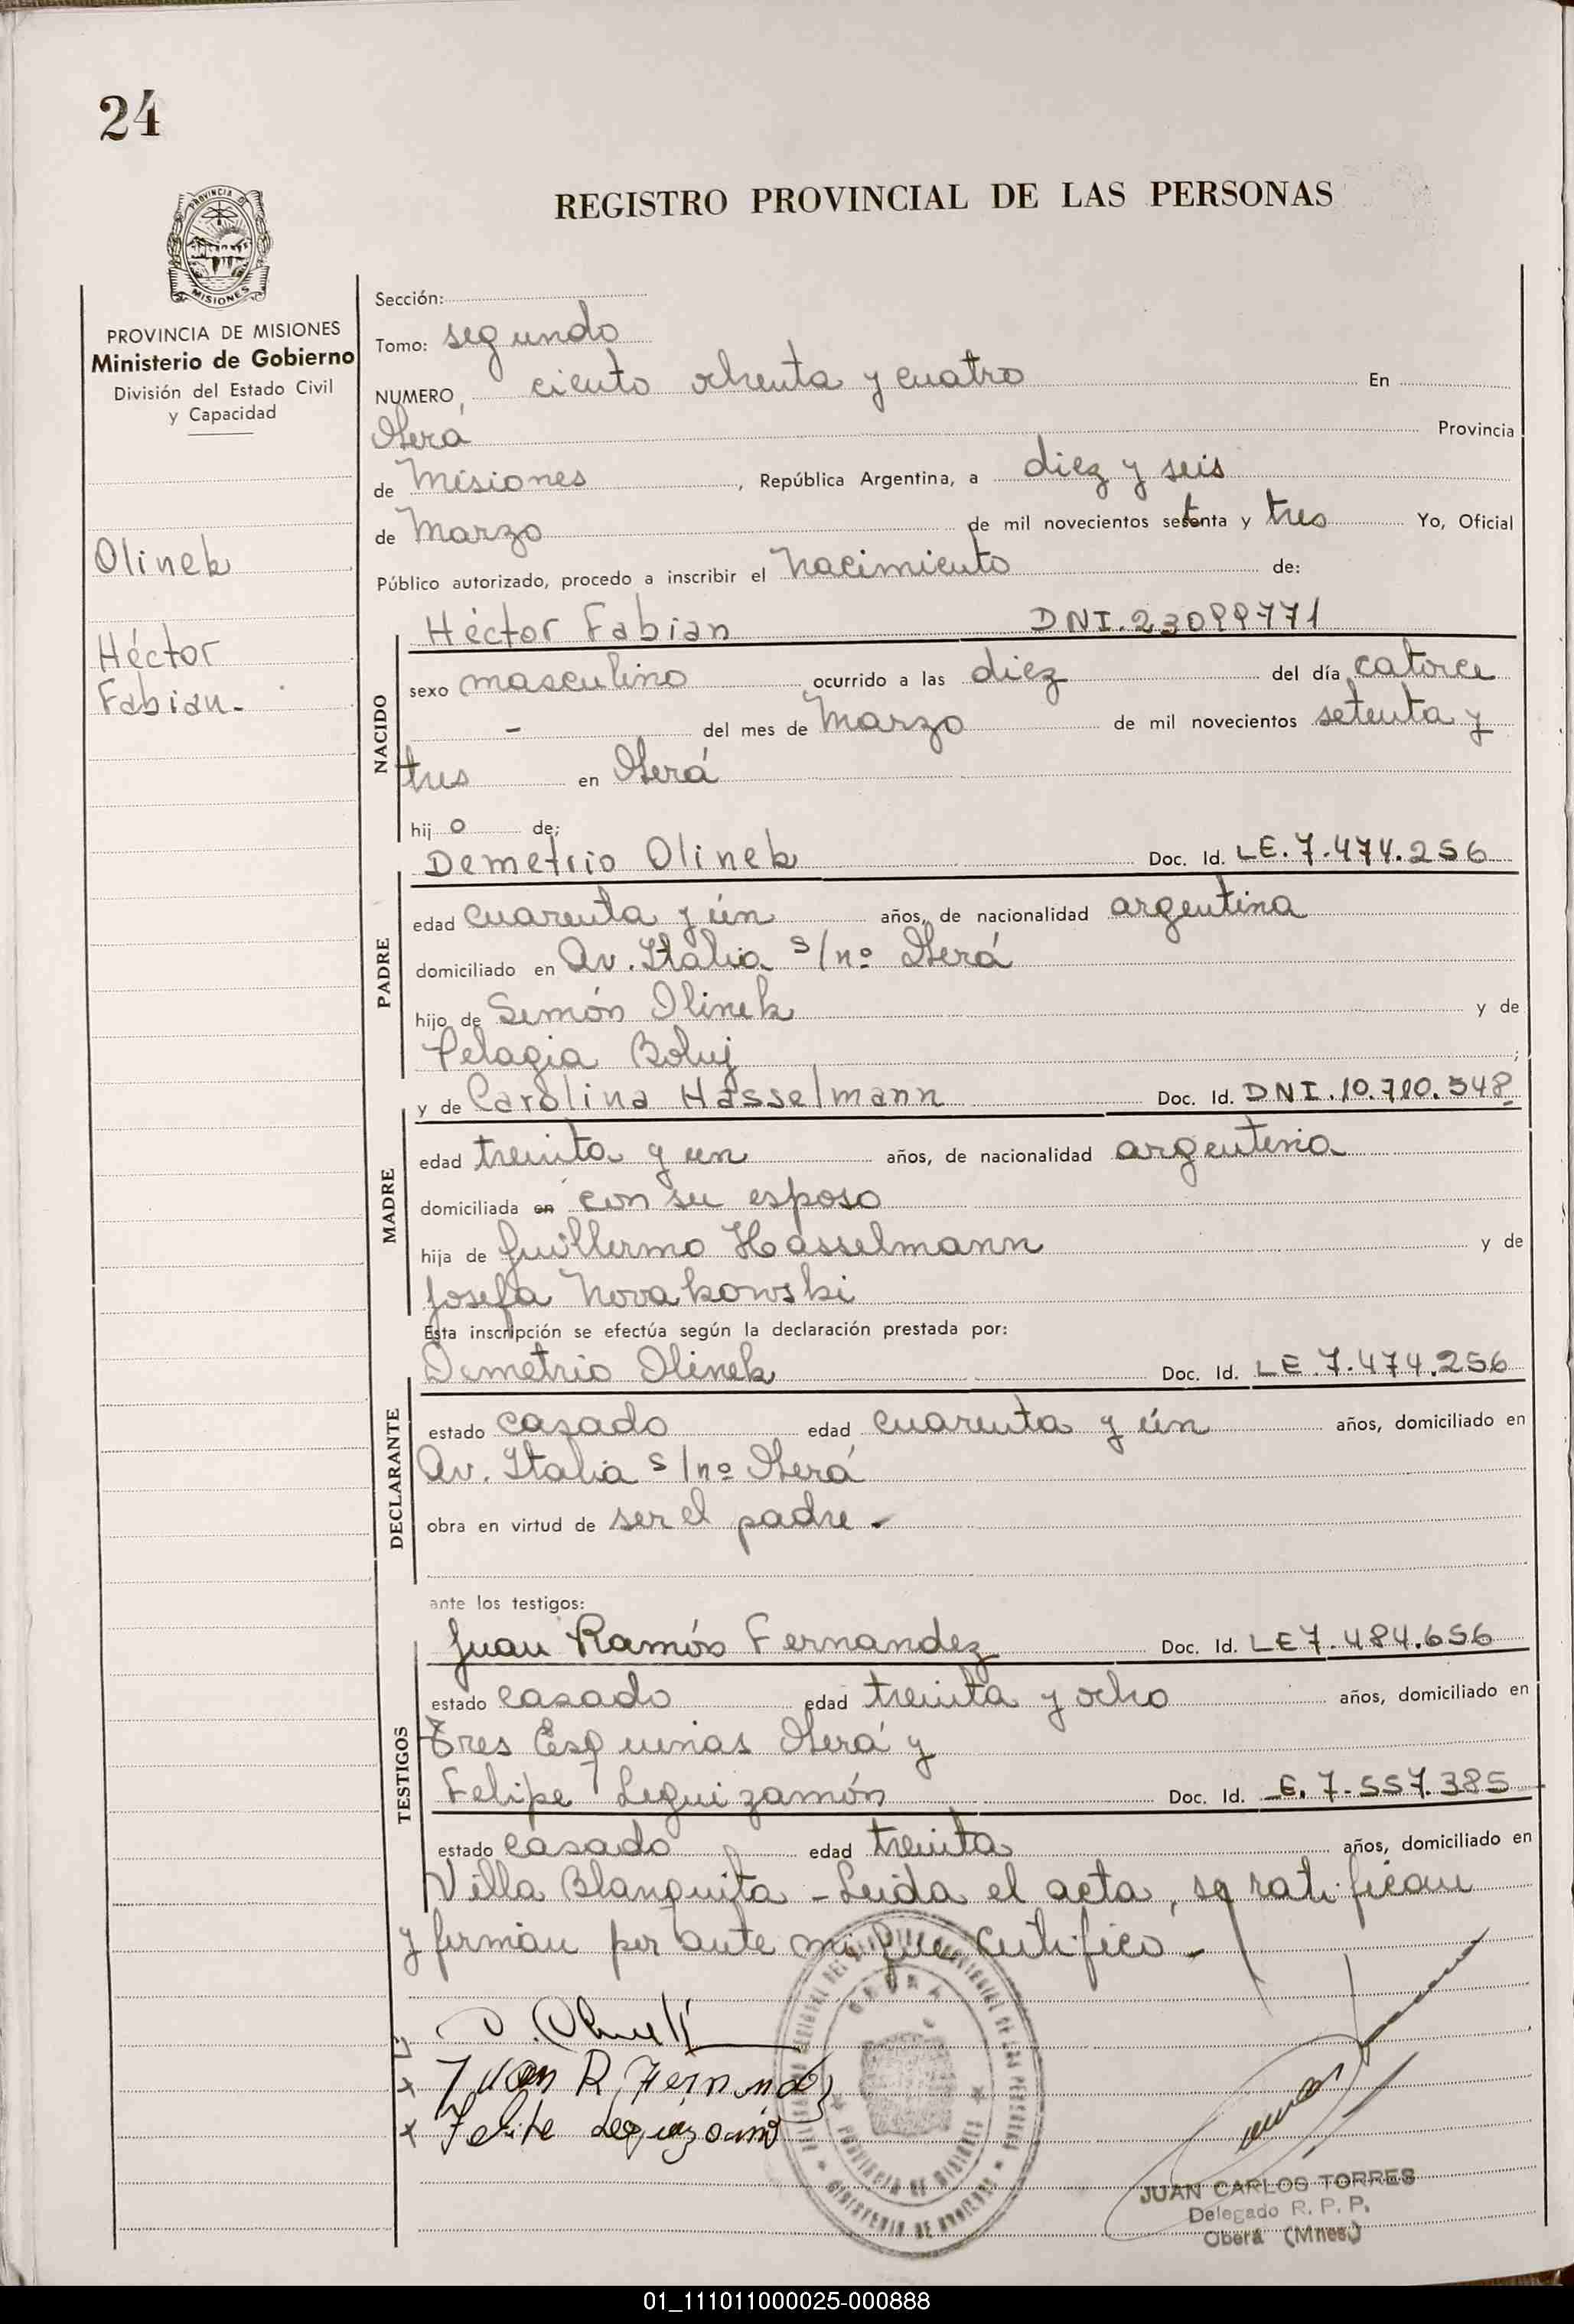 24
REGISTRO PROVINCIAL DE LAS PERSONAS
PROVINCIA
MISIONES
PROVINCIA DE MISIONES
Ministerio de Gobierno
División del Estado Civil
y Capacidad
Olinek
Héctor
Fabian.-
Sección:
Tomo: segundo
NUMERO, ciento ochenta y cuatro En
Oberá Provincia
de Misiones, República Argentina, a diez y seis
de Marzo de mil novecientos setenta y tres Yo, Oficial
Público autorizado, procedo a inscribir el Nacimiento de:
NACIDO
Héctor Fabian DNI. 23099771
sexo masculino ocurrido a las diez del día catorce
- del mes de Marzo de mil novecientos setenta y
tres en Oberá
hijo de:
PADRE
Demetrio Olinek Doc. Id. LE. 7.474.256
edad cuarenta y ún años, de nacionalidad argentina
domiciliado en Av. Italia s/nº Oberá
hijo de Simón Olinek y de
Pelagia Boluj;
MADRE
y de Carolina Hasselmann Doc. Id. DNI. 10.710.548
edad treinta y un años, de nacionalidad argentina
domiciliada en con su esposo
hija de Guillermo Hasselmann y de
Josefa Novakowski
Esta inscripción se efectúa según la declaración prestada por:
DECLARANTE
Demetrio Olinek Doc. Id. LE 7.474.256
estado casado edad cuarenta y ún años, domiciliado en
Av. Italia s/nº Oberá
obra en virtud de ser el padre.-
ante los testigos:
TESTIGOS
Juan Ramón Fernandez Doc. Id. LE 7.484.656
estado casado edad treinta y ocho años, domiciliado en
Tres Esquinas Oberá y
Felipe Leguizamón Doc. Id. LE. 7.557.385
estado casado edad treinta años, domiciliado en
Villa Blanquita - Leida el acta, se ratifican
y firman por ante mi que certifico.-
D. Olinek
Juan R. Fernandez
Felipe Leguizamon
OBERA
PROVINCIA DE MISIONES
MINISTERIO DE GOBIERNO
JUAN CARLOS TORRES
Delegado R. P. P.
Oberá (Mnes.)
01_111011000025-000888